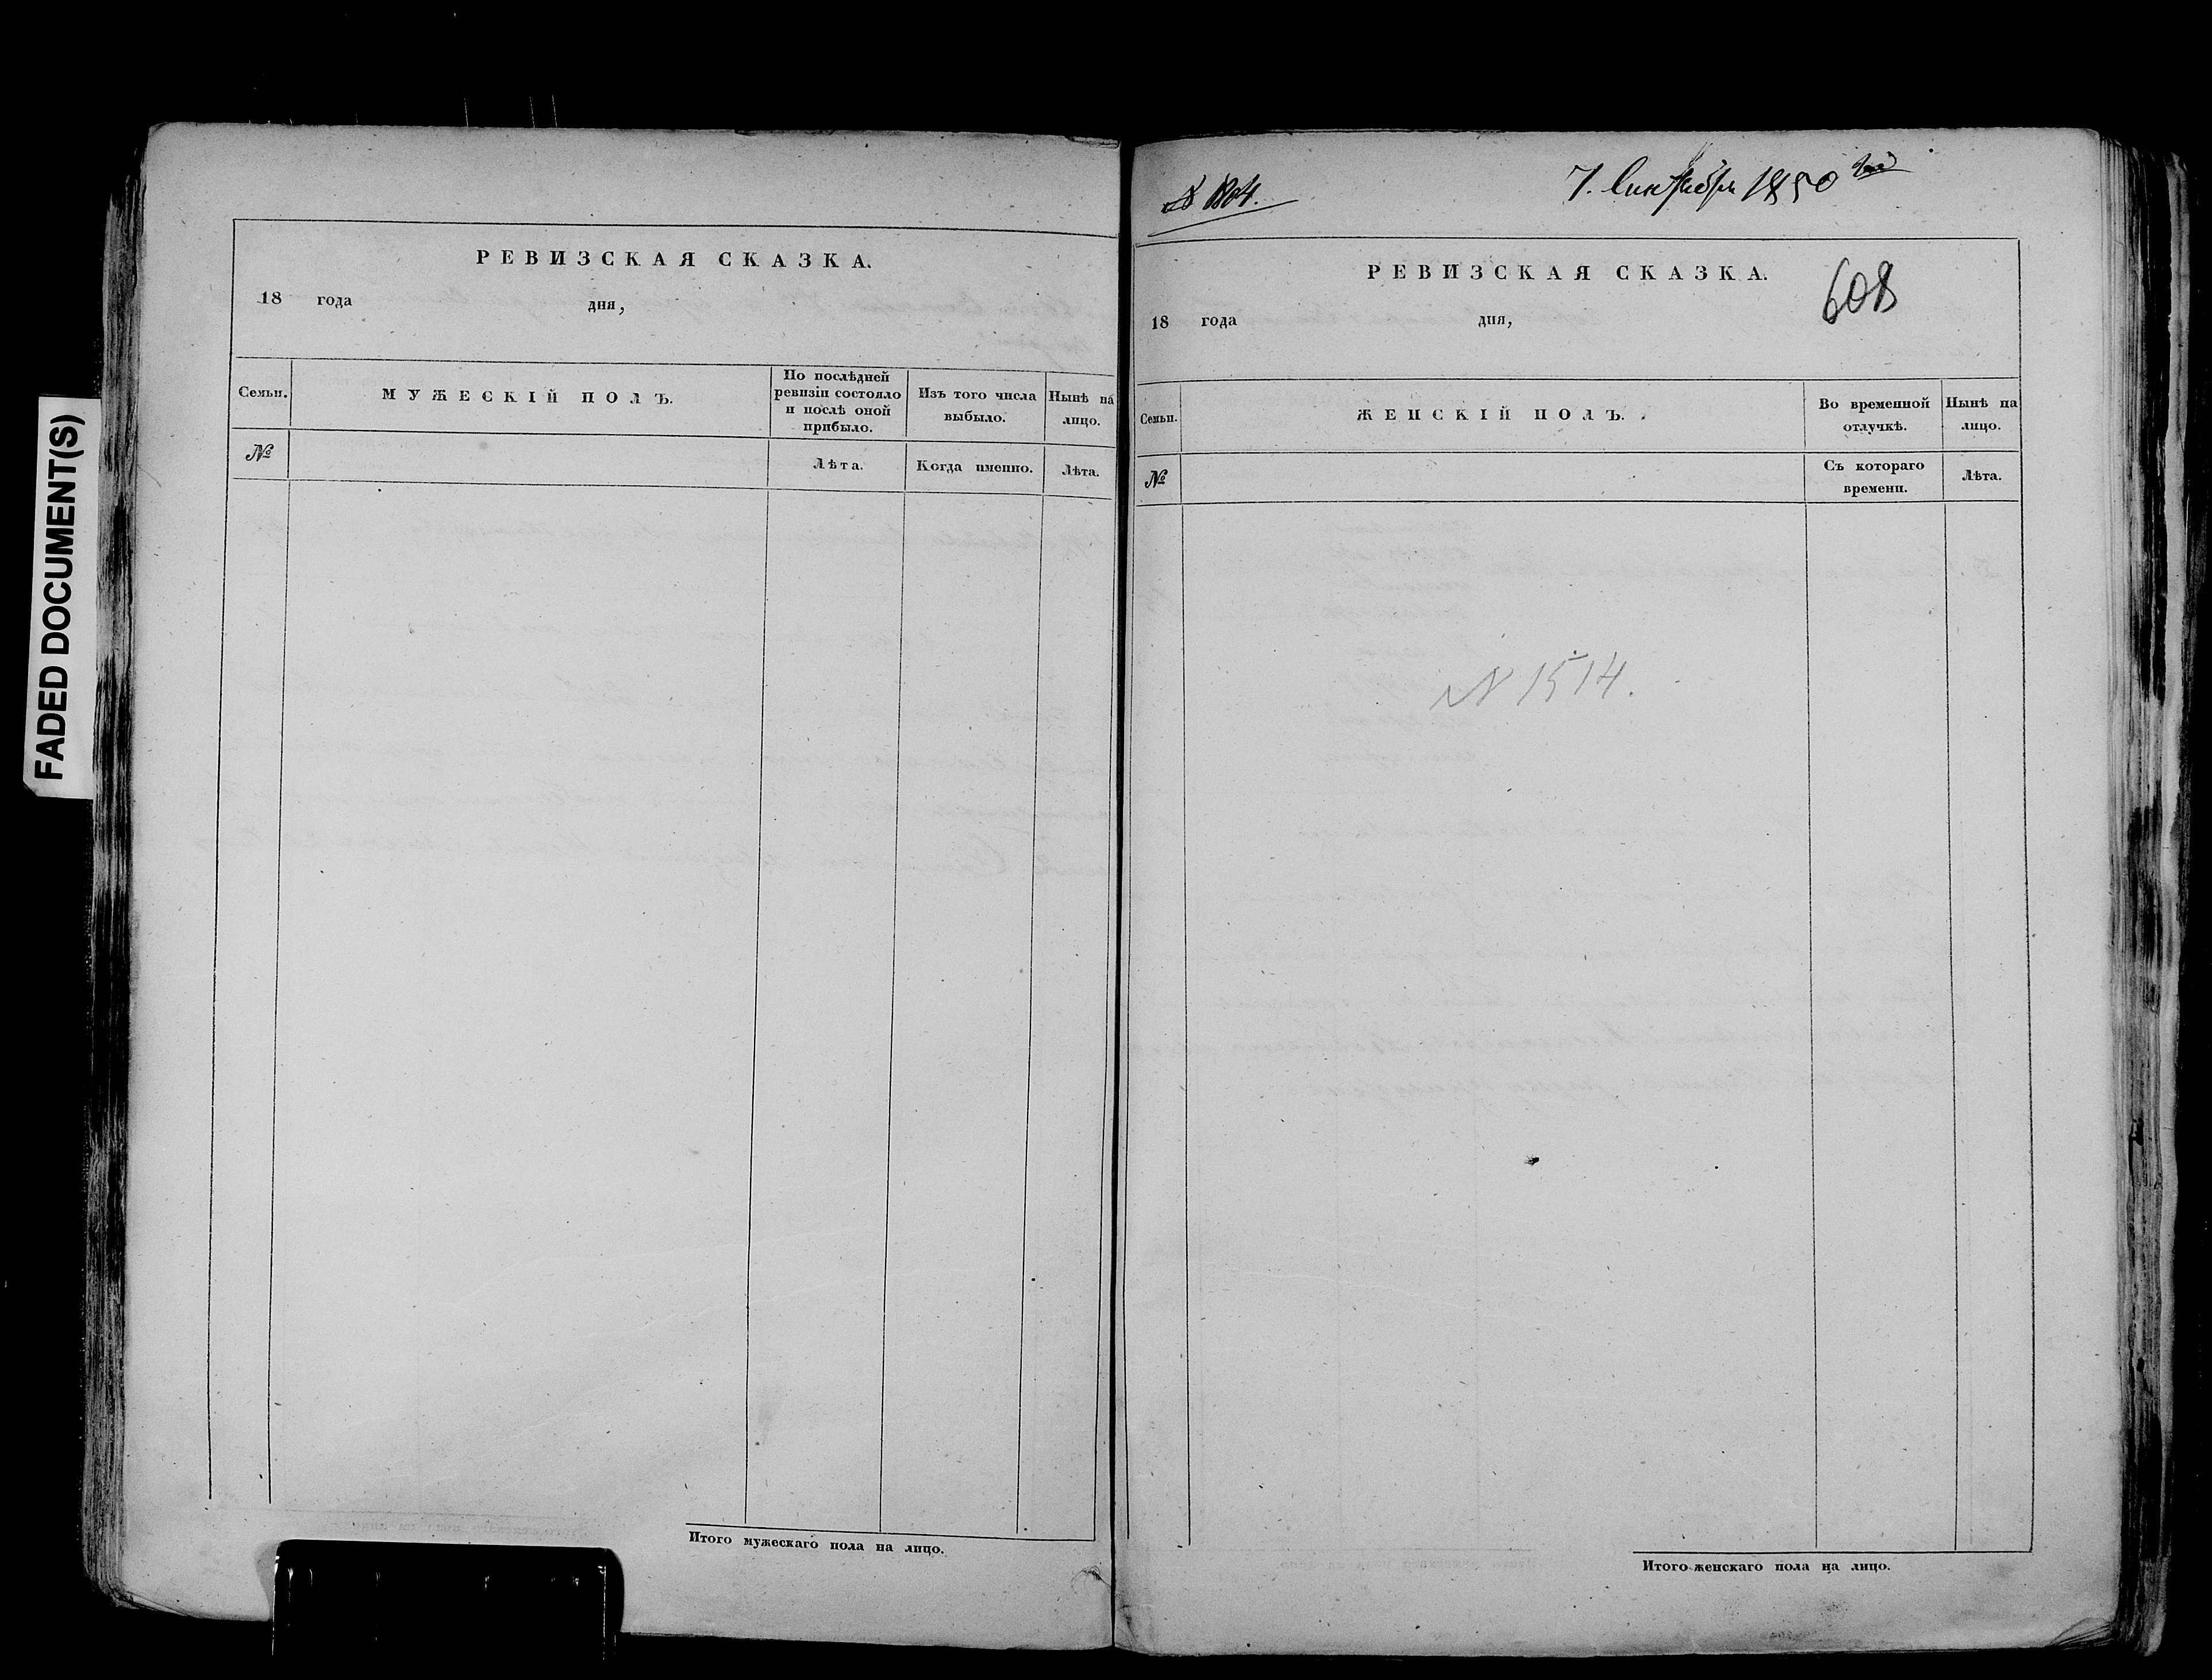 FADED DOCUMENT(S)
РЕВИЗСКАЯ СКАЗКА.
18 года дня,
Семьи. МУЖЕСКІЙ ПОЛЪ. По послѣдней ревизіи состояло и послѣ оной прибыло. Изъ того числа выбыло. Нынѣ на лицо.
№ Лѣта. Когда именно. Лѣта.
Итого мужескаго пола на лицо.
7. Сентября 1850
РЕВИЗСКАЯ СКАЗКА.
608
18 года дня,
Семьи. ЖЕНСКІЙ ПОЛЪ. Во временной отлучкѣ. Нынѣ на лицо.
№ Съ котораго времени. Лѣта.
N 1514.
Итого женскаго пола на лицо.